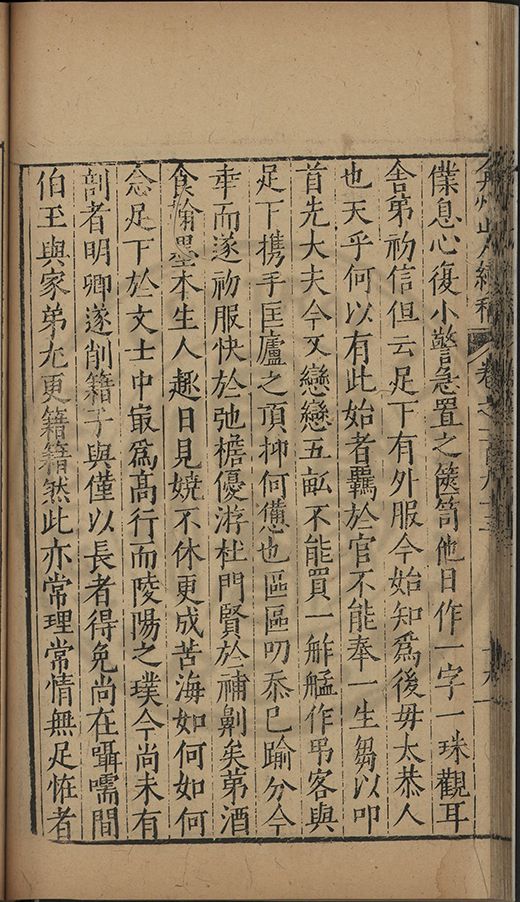 僕息心復小警急置之篋笥他日作一字一珠觀耳
舎弟初信但云足下有外服今始知爲後毋太恭人
也天乎何以有此始者羈於官不能奉一生芻以叩
首先大夫今又戀戀五畆不能買一舴艋作弔客與
足下携手匡廬之頂抑何憊也區區叨忝已踰分今
幸而遂初服快於弛檐優游杜門賢於補劓矣苐酒
食翰墨本生人趣日見嬈不休更成苦海如何如何
念足下於文士中㝡爲高行而陵陽之璞今尚未有
剖者明卿遂削籍子與僅以長者得免尚在囁嚅間
伯玉與家弟尢更籍籍然此亦常理常情無足恠者